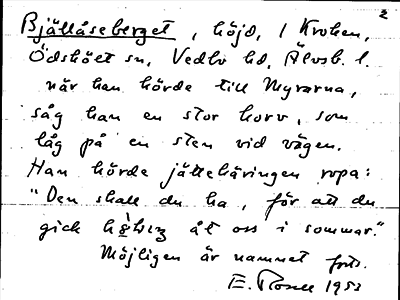 2
Bjällåseberget, höjd, i Kroken,
Ödskölt sn, Vedbo hd, Älvsb. l.
när han körde till Myrarna,
såg han en stor korv, som
låg på en sten vid vägen.
Han hörde jättekäringen ropa:
"Den skall du ha, för att du
gick åt oss i sommar."
Möjligen är namnet forts.
1953